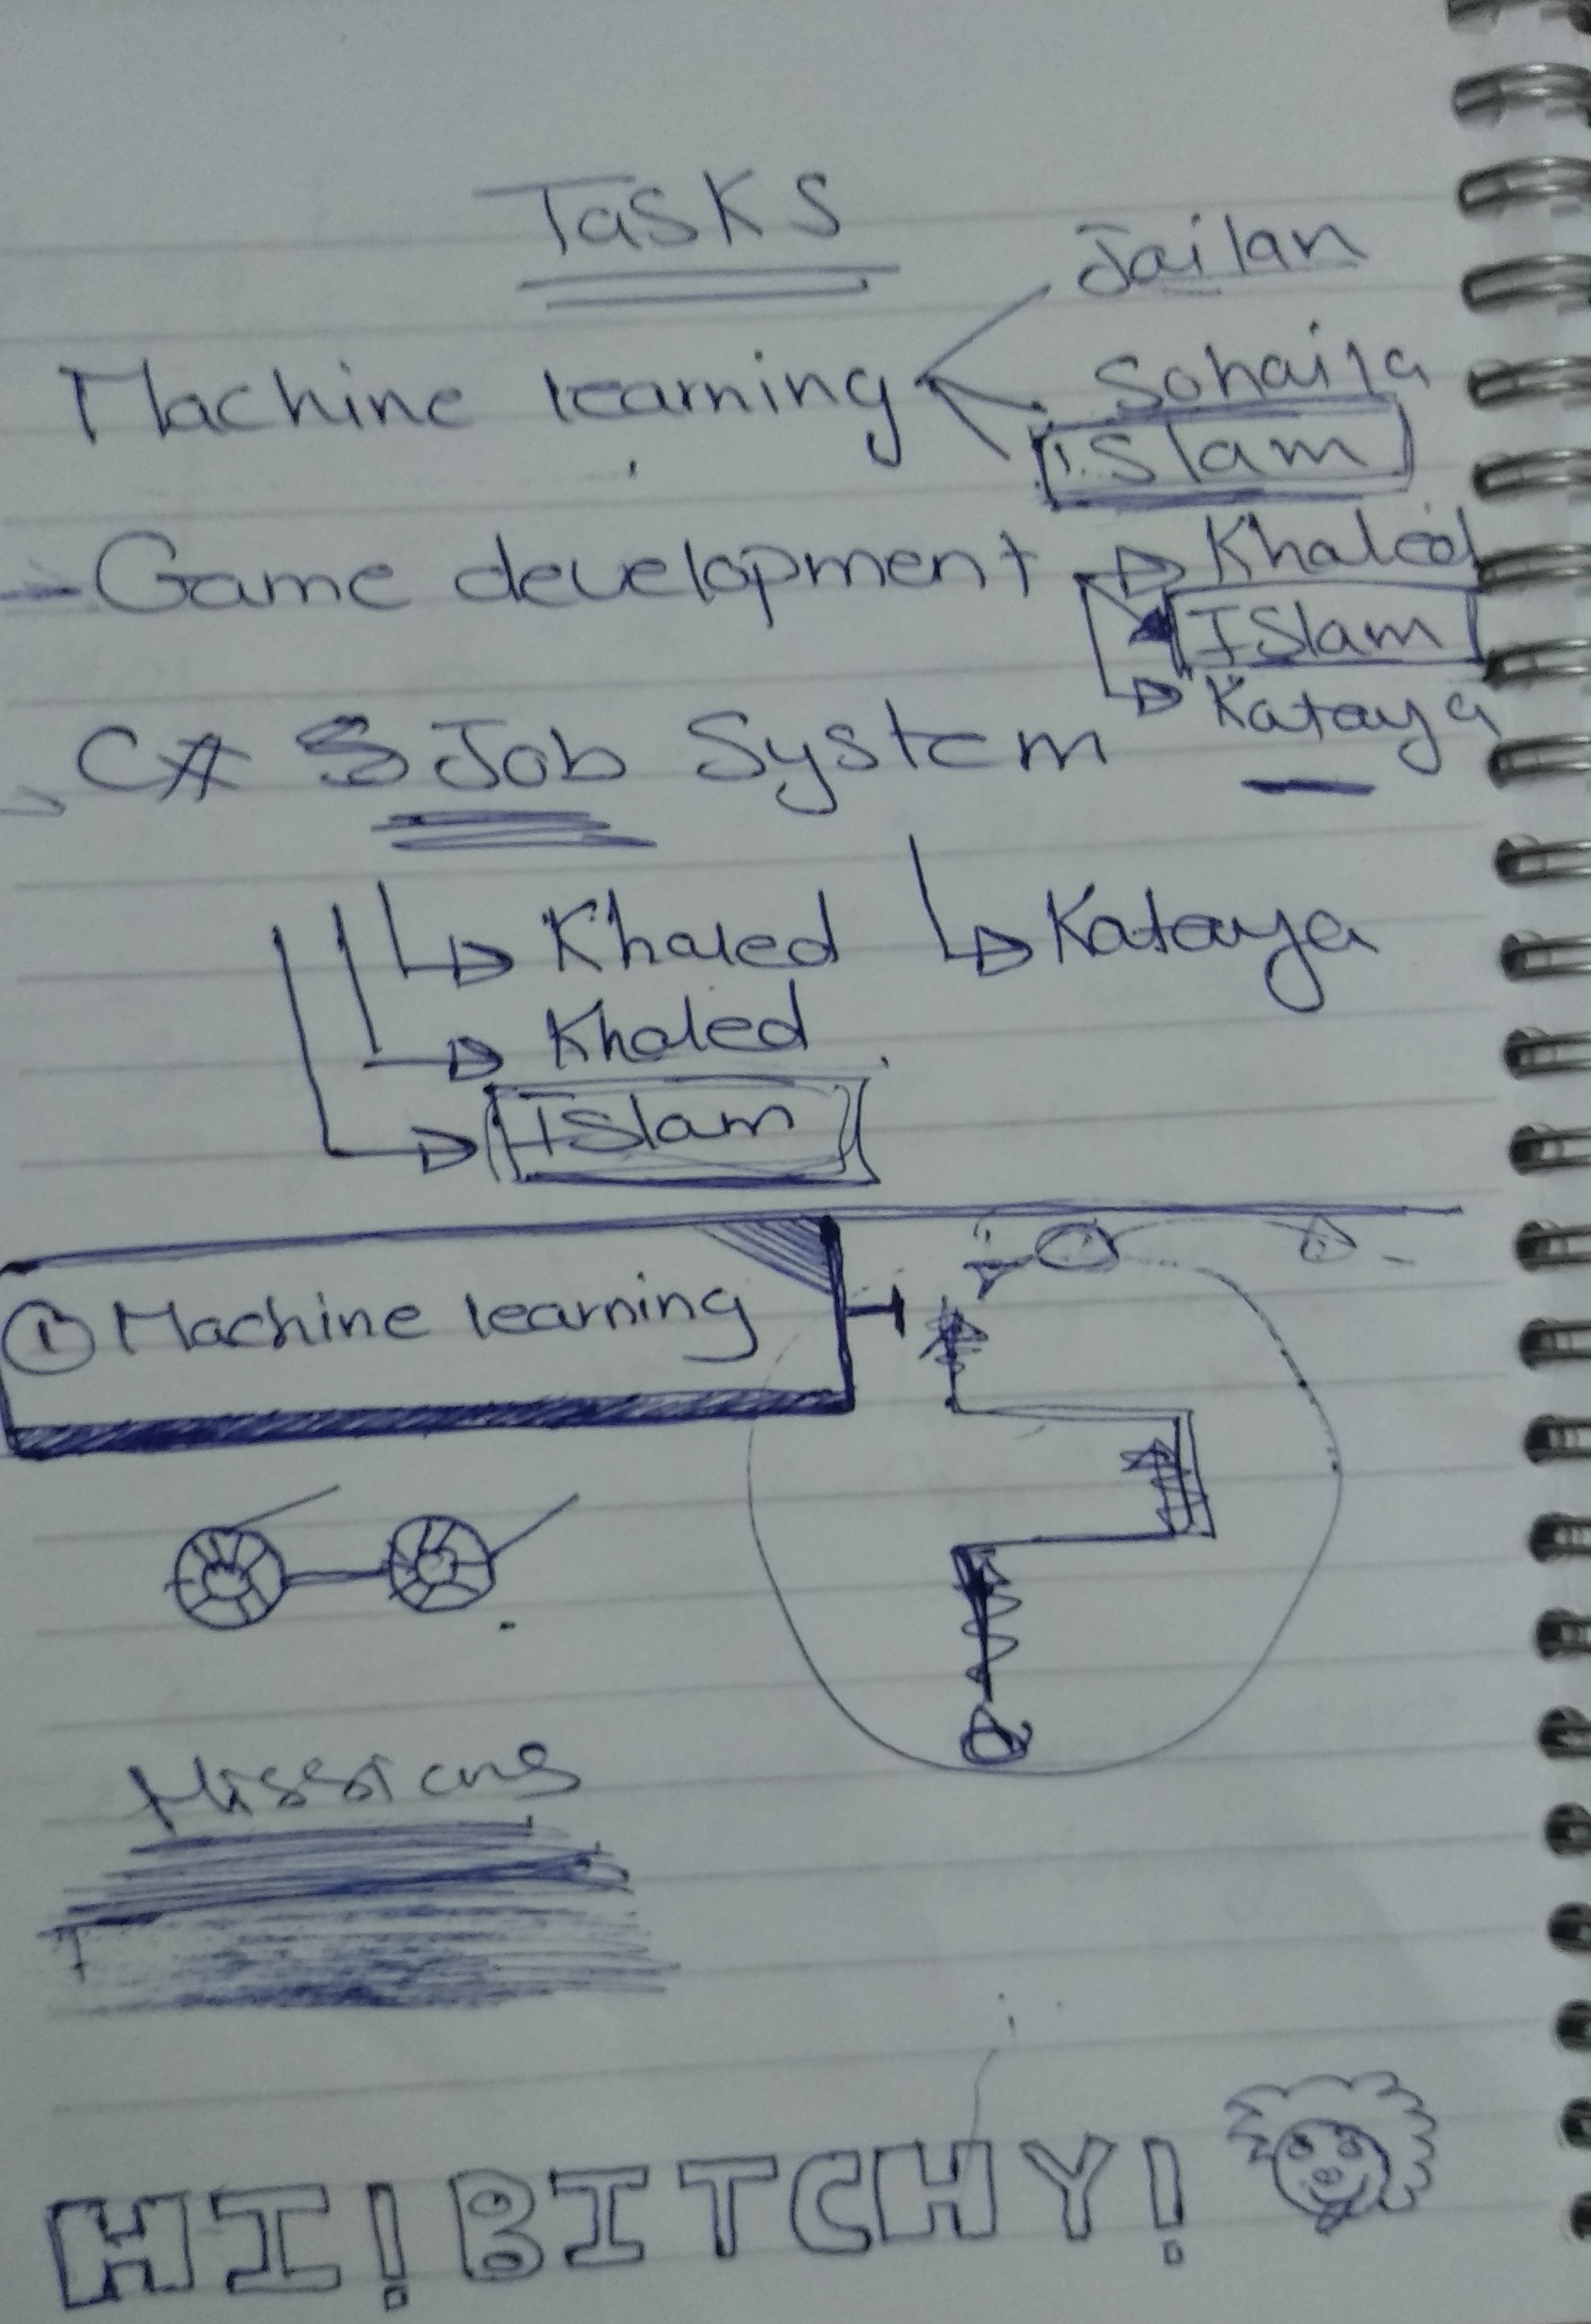 Tasks
Jailan
Machine learning
Sohaila
islam
- Game development
Khaled
Islam
Kataya
C# Job System
Khaled
Kataya
Khaled
Islam
① Machine learning
Missions
HI! BITCHY!